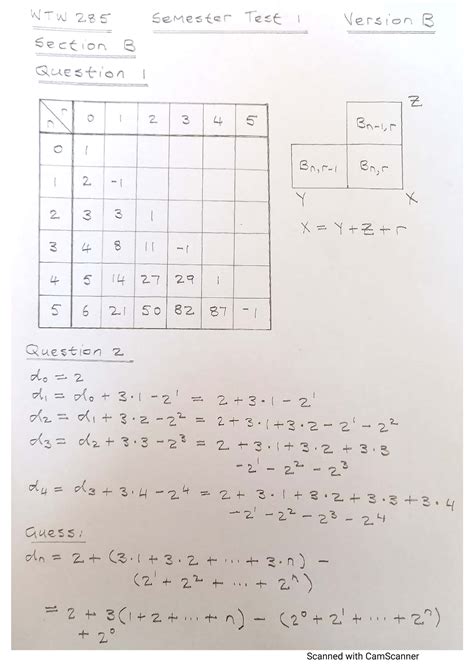 WTW 285 Semester Test 1 Version B
Section B
Question 1
n r 0 1 2 3 4 5
0 1
1 2 -1
2 3 3 1
3 4 8 11 -1
4 5 14 27 29 1
5 6 21 50 82 87 -1
Z
Bn-1,r
Bn,r-1 Bn,r
Y X
X = Y + Z + r
Question 2
d₀ = 2
d₁ = d₀ + 3·1 - 2¹ = 2 + 3·1 - 2¹
d₂ = d₁ + 3·2 - 2² = 2 + 3·1 + 3·2 - 2¹ - 2²
d₃ = d₂ + 3·3 - 2³ = 2 + 3·1 + 3·2 + 3·3
-2¹ - 2² - 2³
d₄ = d₃ + 3·4 - 2⁴ = 2 + 3·1 + 3·2 + 3·3 + 3·4
-2¹ - 2² - 2³ - 2⁴
Guess:
dₙ = 2 + (3·1 + 3·2 + ··· + 3·n) -
(2¹ + 2² + ··· + 2ⁿ)
= 2 + 3(1 + 2 + ··· + n) - (2⁰ + 2¹ + ··· + 2ⁿ)
+ 2⁰
Scanned with CamScanner